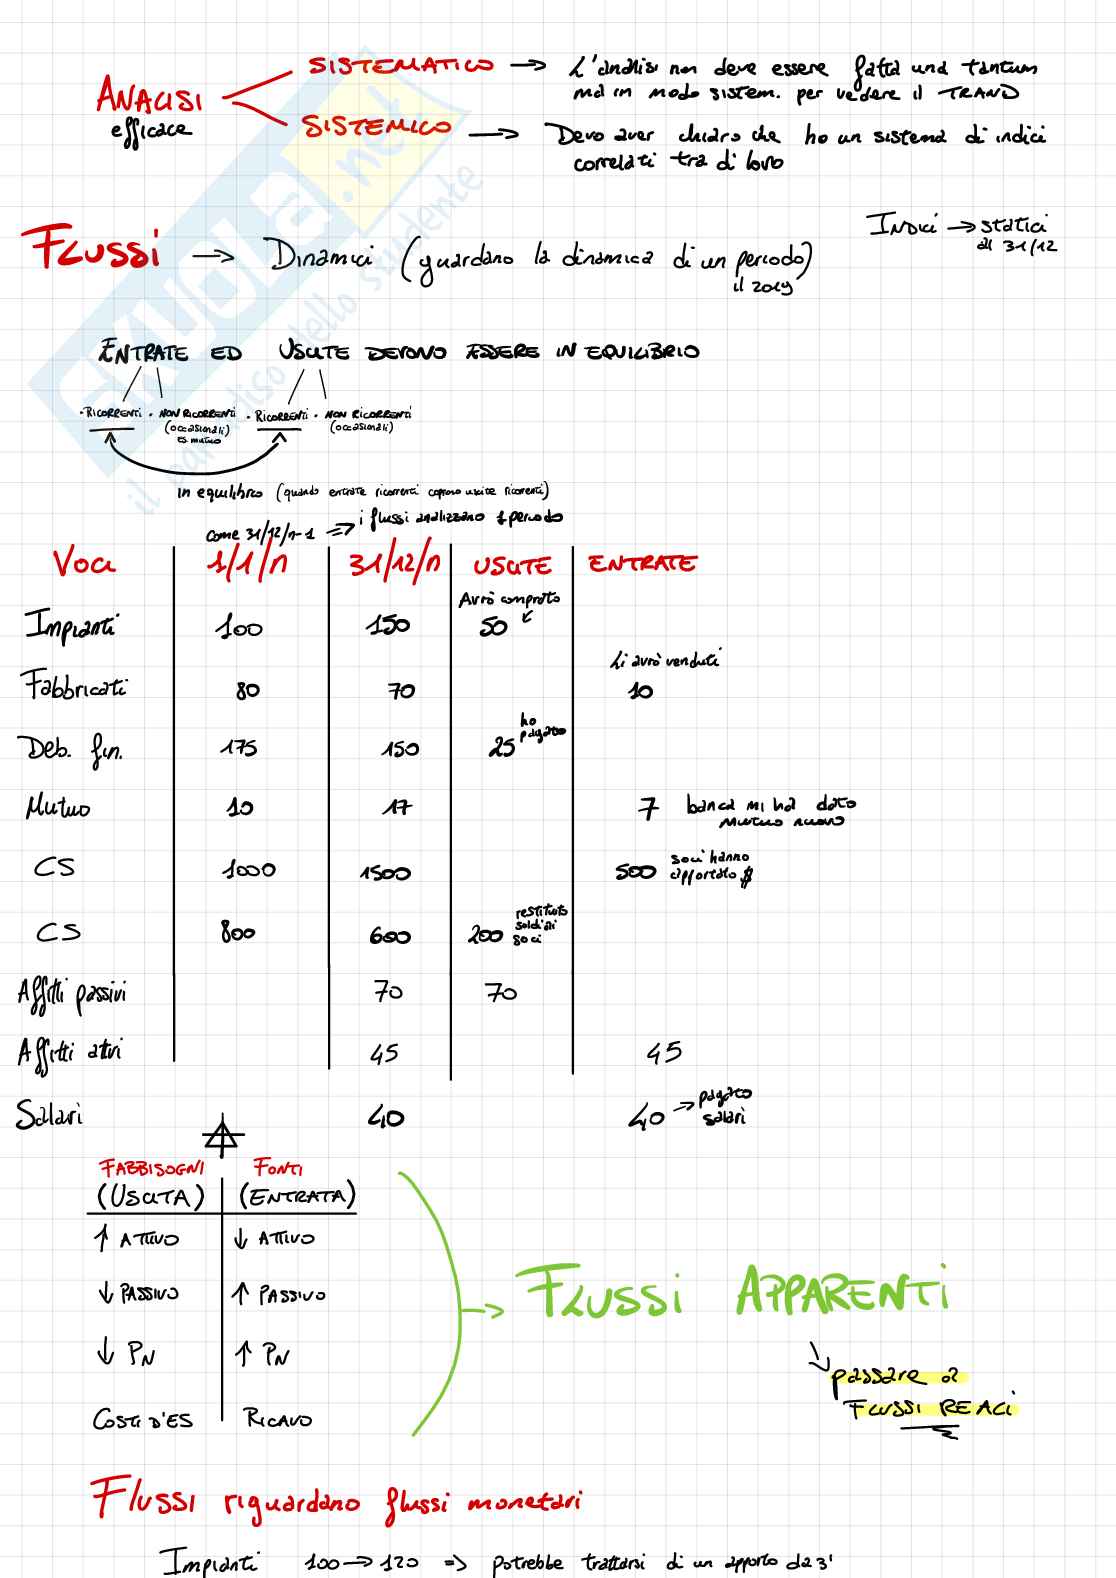 ANALISI
efficace
SISTEMATICO → L'analisi non deve essere fatta una tantum
ma in modo sistem. per vedere il TRAND
SISTEMICO → Devo aver chiaro che ho un sistema di indici
correlati tra di loro
INDICI → statici
al 31/12
FLUSSI → DINAMICI (guardano la dinamica di un periodo)
il 2019
ENTRATE ED USCITE DEVONO ESSERE IN EQUILIBRIO
· RICORRENTI · NON RICORRENTI · RICORRENTI · NON RICORRENTI
(occasionali) (occasionali)
es. mutuo
in equilibrio (quando entrate ricorrenti coprono uscite ricorrenti)
come 31/12/n-1 => i flussi analizzano 1 periodo
VOCI 1/1/n 31/12/n USCITE ENTRATE
Avrò comprato
Impianti 100 150 50
Li avrò venduti
Fabbricati 80 70 10
Deb. fin. 175 150 25 ho pagato
Mutuo 10 17 7 banca mi ha dato
mutuo nuovo
CS 1000 1500 500 soci hanno
apportato $
CS 800 600 200 restituito
soldi ai
soci
Affitti passivi 70 70
Affitti attivi 45 45
Salari 40 40 → pagato
salari
FABBISOGNI FONTI
(USCITA) (ENTRATA)
↑ ATTIVO ↓ ATTIVO
↓ PASSIVO ↑ PASSIVO
↓ PN ↑ PN
COSTI D'ES RICAVO
→ FLUSSI APPARENTI
passare a
FLUSSI REALI
Flussi riguardano flussi monetari
Impianti 100 → 120 => potrebbe trattarsi di un apporto da 3'
SKUOLA.net
il paradiso dello studente